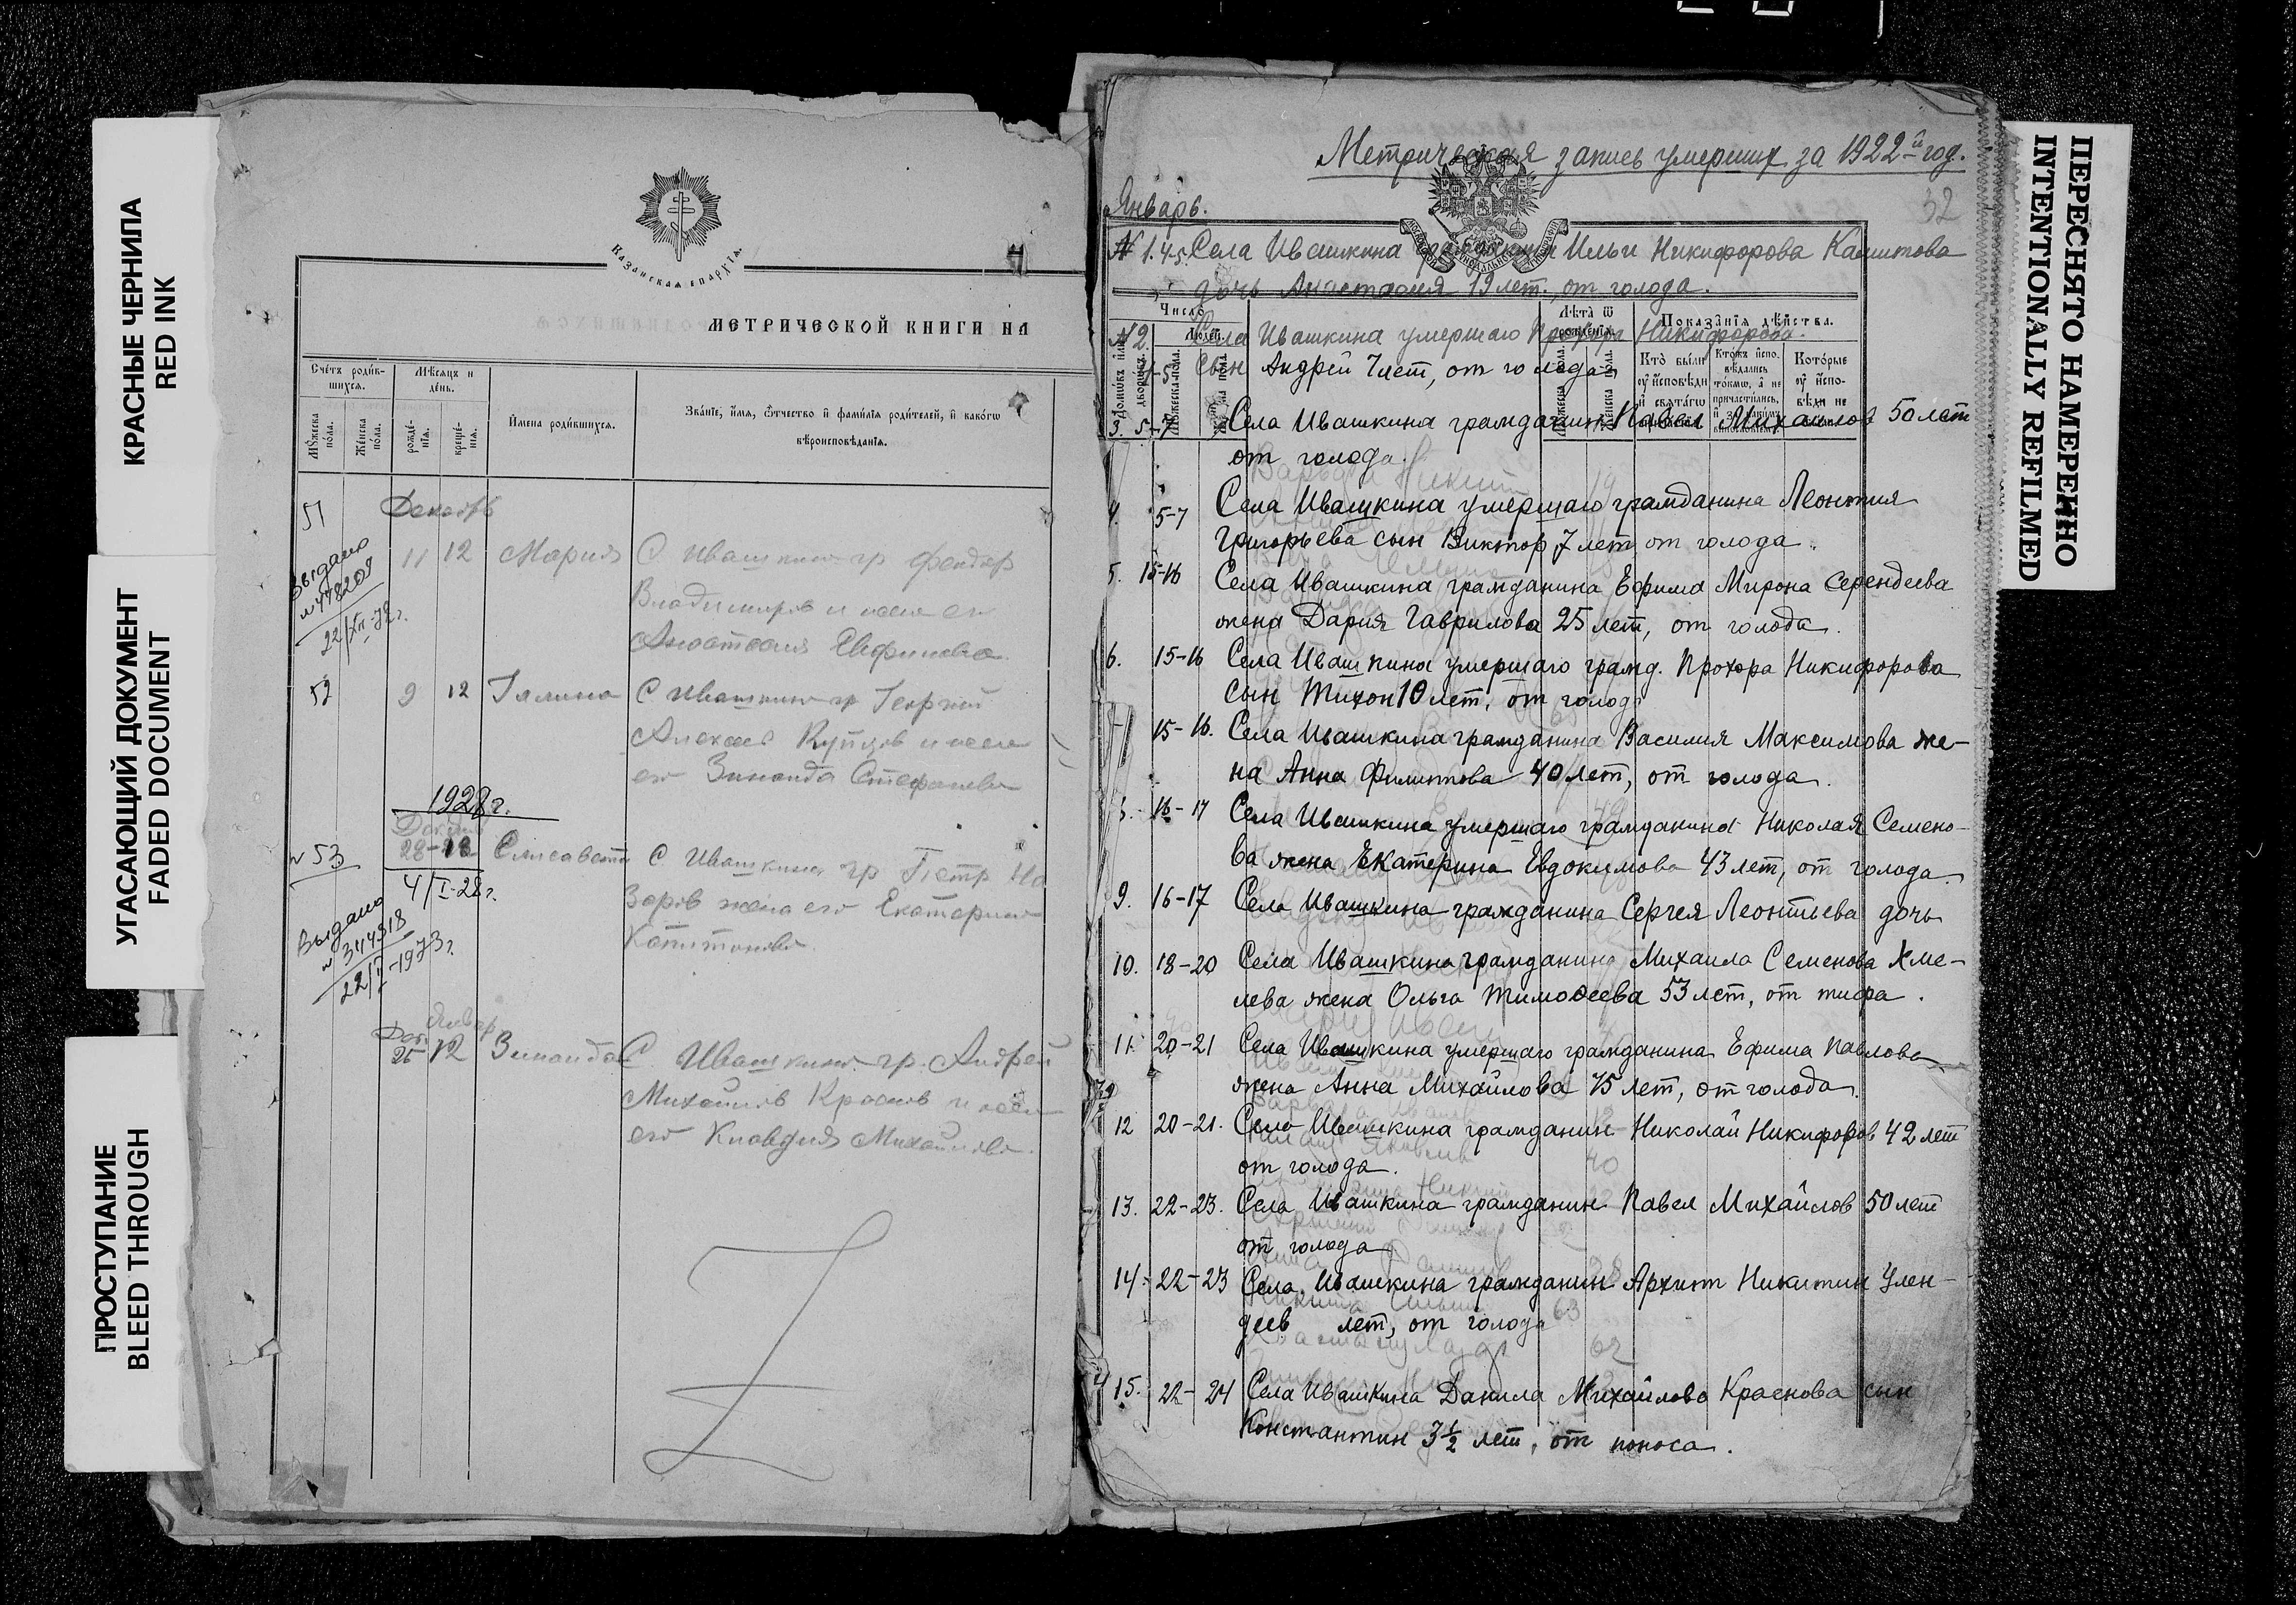 КРАСНЫЕ ЧЕРНИЛА
RED INK
УГАСАЮЩИЙ ДОКУМЕНТ
FADED DOCUMENT
ПРОСТУПАНИЕ
BLEED THROUGH
Казанская епархїѧ
МЕТРИЧЕСКОЙ КНИГИ НА
Счéтъ роди́в-
шихсѧ.
Мѣ́сѧцъ и
дéнь.
Мꙋ́жеска
по́ла.
Же́нска
по́ла.
рожде́-
нїѧ.
креще́-
нїѧ.
Имена роди́вшихсѧ.
Зва́нїе, и́мѧ, ѻ́тчество и҆ фами́лїѧ роди́телей, и҆ како́гѡ
вѣроисповѣ́данїѧ.
51
Декабрь
Выдано
№ 478209
22/XII-72г.
11 12 Мария С. Ивашкино гр Феодор
Владимиров и жена его
Анастасия Евфимова.
52 9 12 Галина С Ивашкино гр Георгий
Алексеев Купцов и жена
его Зинаида Стефанова
1928г.
№ 53 28- Елисавета С Ивашкино гр Петр На
4/I-28г.
заров жена его Екатерина
Капитонова.
Выдано
№ 344818
22/I-1973г.
Январ
Дек.
25 12 Зинаида С. Ивашкино. гр. Андрей
Михайлов Краснов и жена
его Клавдия Михайлова.
Метрическая запись умерших за 1922-й год.
32
Январь.
№ 1. 4-5. Села Ивашкина гражданина Ильи Никифорова Капитова
дочь Анастасия 19 лет, от голода.
Число̀
Людей.
Лѣ́та ѿ
рождéнїѧ.
Показа̑нїѧ дѣ́йства.
Кто̀ бы́ли
ᲂу҆ и҆сповѣ́ди
и҆ свѧта́гѡ
Кто́жъ и҆спо-
вѣ́дались
то́кмѡ, а҆ не
причасти́лись,
Кото́рые
ᲂу҆ и҆спо-
вѣ́ди не
№2. Села Ивашкина умершаго Прохора Никифорова
4-5 сын Андрей 7 лет, от голода
3. 5-7 Села Ивашкина гражданин Павел Михаилов 50 лет
от голода.
4. 5-7 Села Ивашкина умершаго гражданина Леонтия
Григорьева сын Виктор 7 лет, от голода.
5. 15-16 Села Ивашкина гражданина Ефима Мирона Серендеева
жена Дария Гаврилова 25 лет, от голода.
6. 15-16 Села Ивашкина умершаго гражд. Прохора Никифорова
сын Тихон 10 лет, от голода
15-16. Села Ивашкина гражданина Василия Максимова же-
на Анна Филиппова 40 лет, от голода.
16-17 Села Ивашкина умершаго гражданина Николая Семено-
ва жена Екатерина Евдокимова 43 лет, от голода.
9. 16-17 Села Ивашкина гражданина Сергея Леонтьева дочь
10. 18-20 Села Ивашкина гражданина Михаила Семенова Хме-
лева жена Ольга Тимоѳеева 53 лет, от тифа.
11. 20-21 Села Ивашкина умершаго гражданина Ефима Павлова
жена Анна Михайлова 75 лет, от голода.
12 20-21. Села Ивашкина гражданин Николай Никифоров 42 лет
от голода.
13. 22-23. Села Ивашкина гражданин Павел Михайлов 50 лет
от голода
14. 22-23 Села Ивашкина гражданин Архип Никитин Улен-
деев лет, от голода
15. 22-24 Села Ивашкина Данила Михайлова Краснова сын
Константин 3½ лет, от поноса.
ПЕРЕСНЯТО НАМЕРЕННО
INTENTIONALLY REFILMED